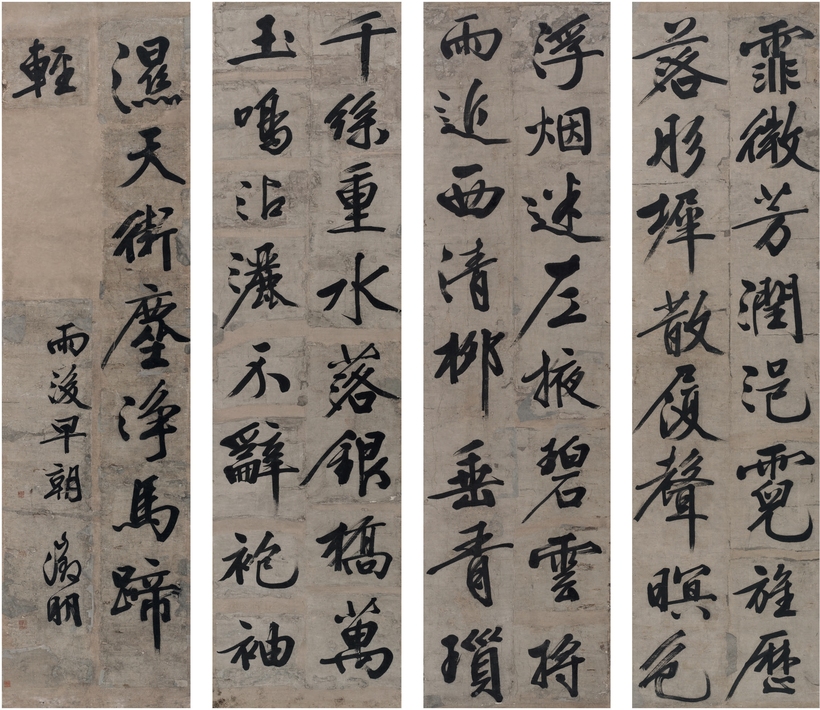 霏微芳潤浥霓旌歷
落彤墀散履聲暝色
浮烟迷左掖碧雲將
雨近西清柳垂青瑣
千絲重水落銀橋萬
玉鳴沾灑不辭袍袖
濕天街塵淨馬蹄
輕
雨後早朝 徵明